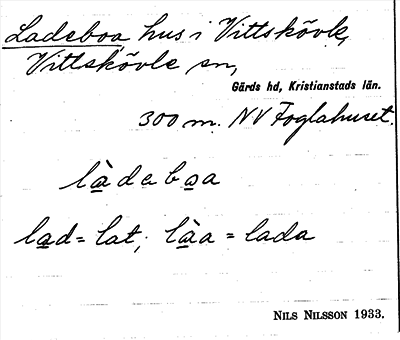 Ladeboa, hus i Vittskövle,
Vittskövle sn,
Gärds hd, Kristianstads län.
300 m. NV Foglahuset.
làdeboa
lad = lat; làa = lada
NILS NILSSON 1933.